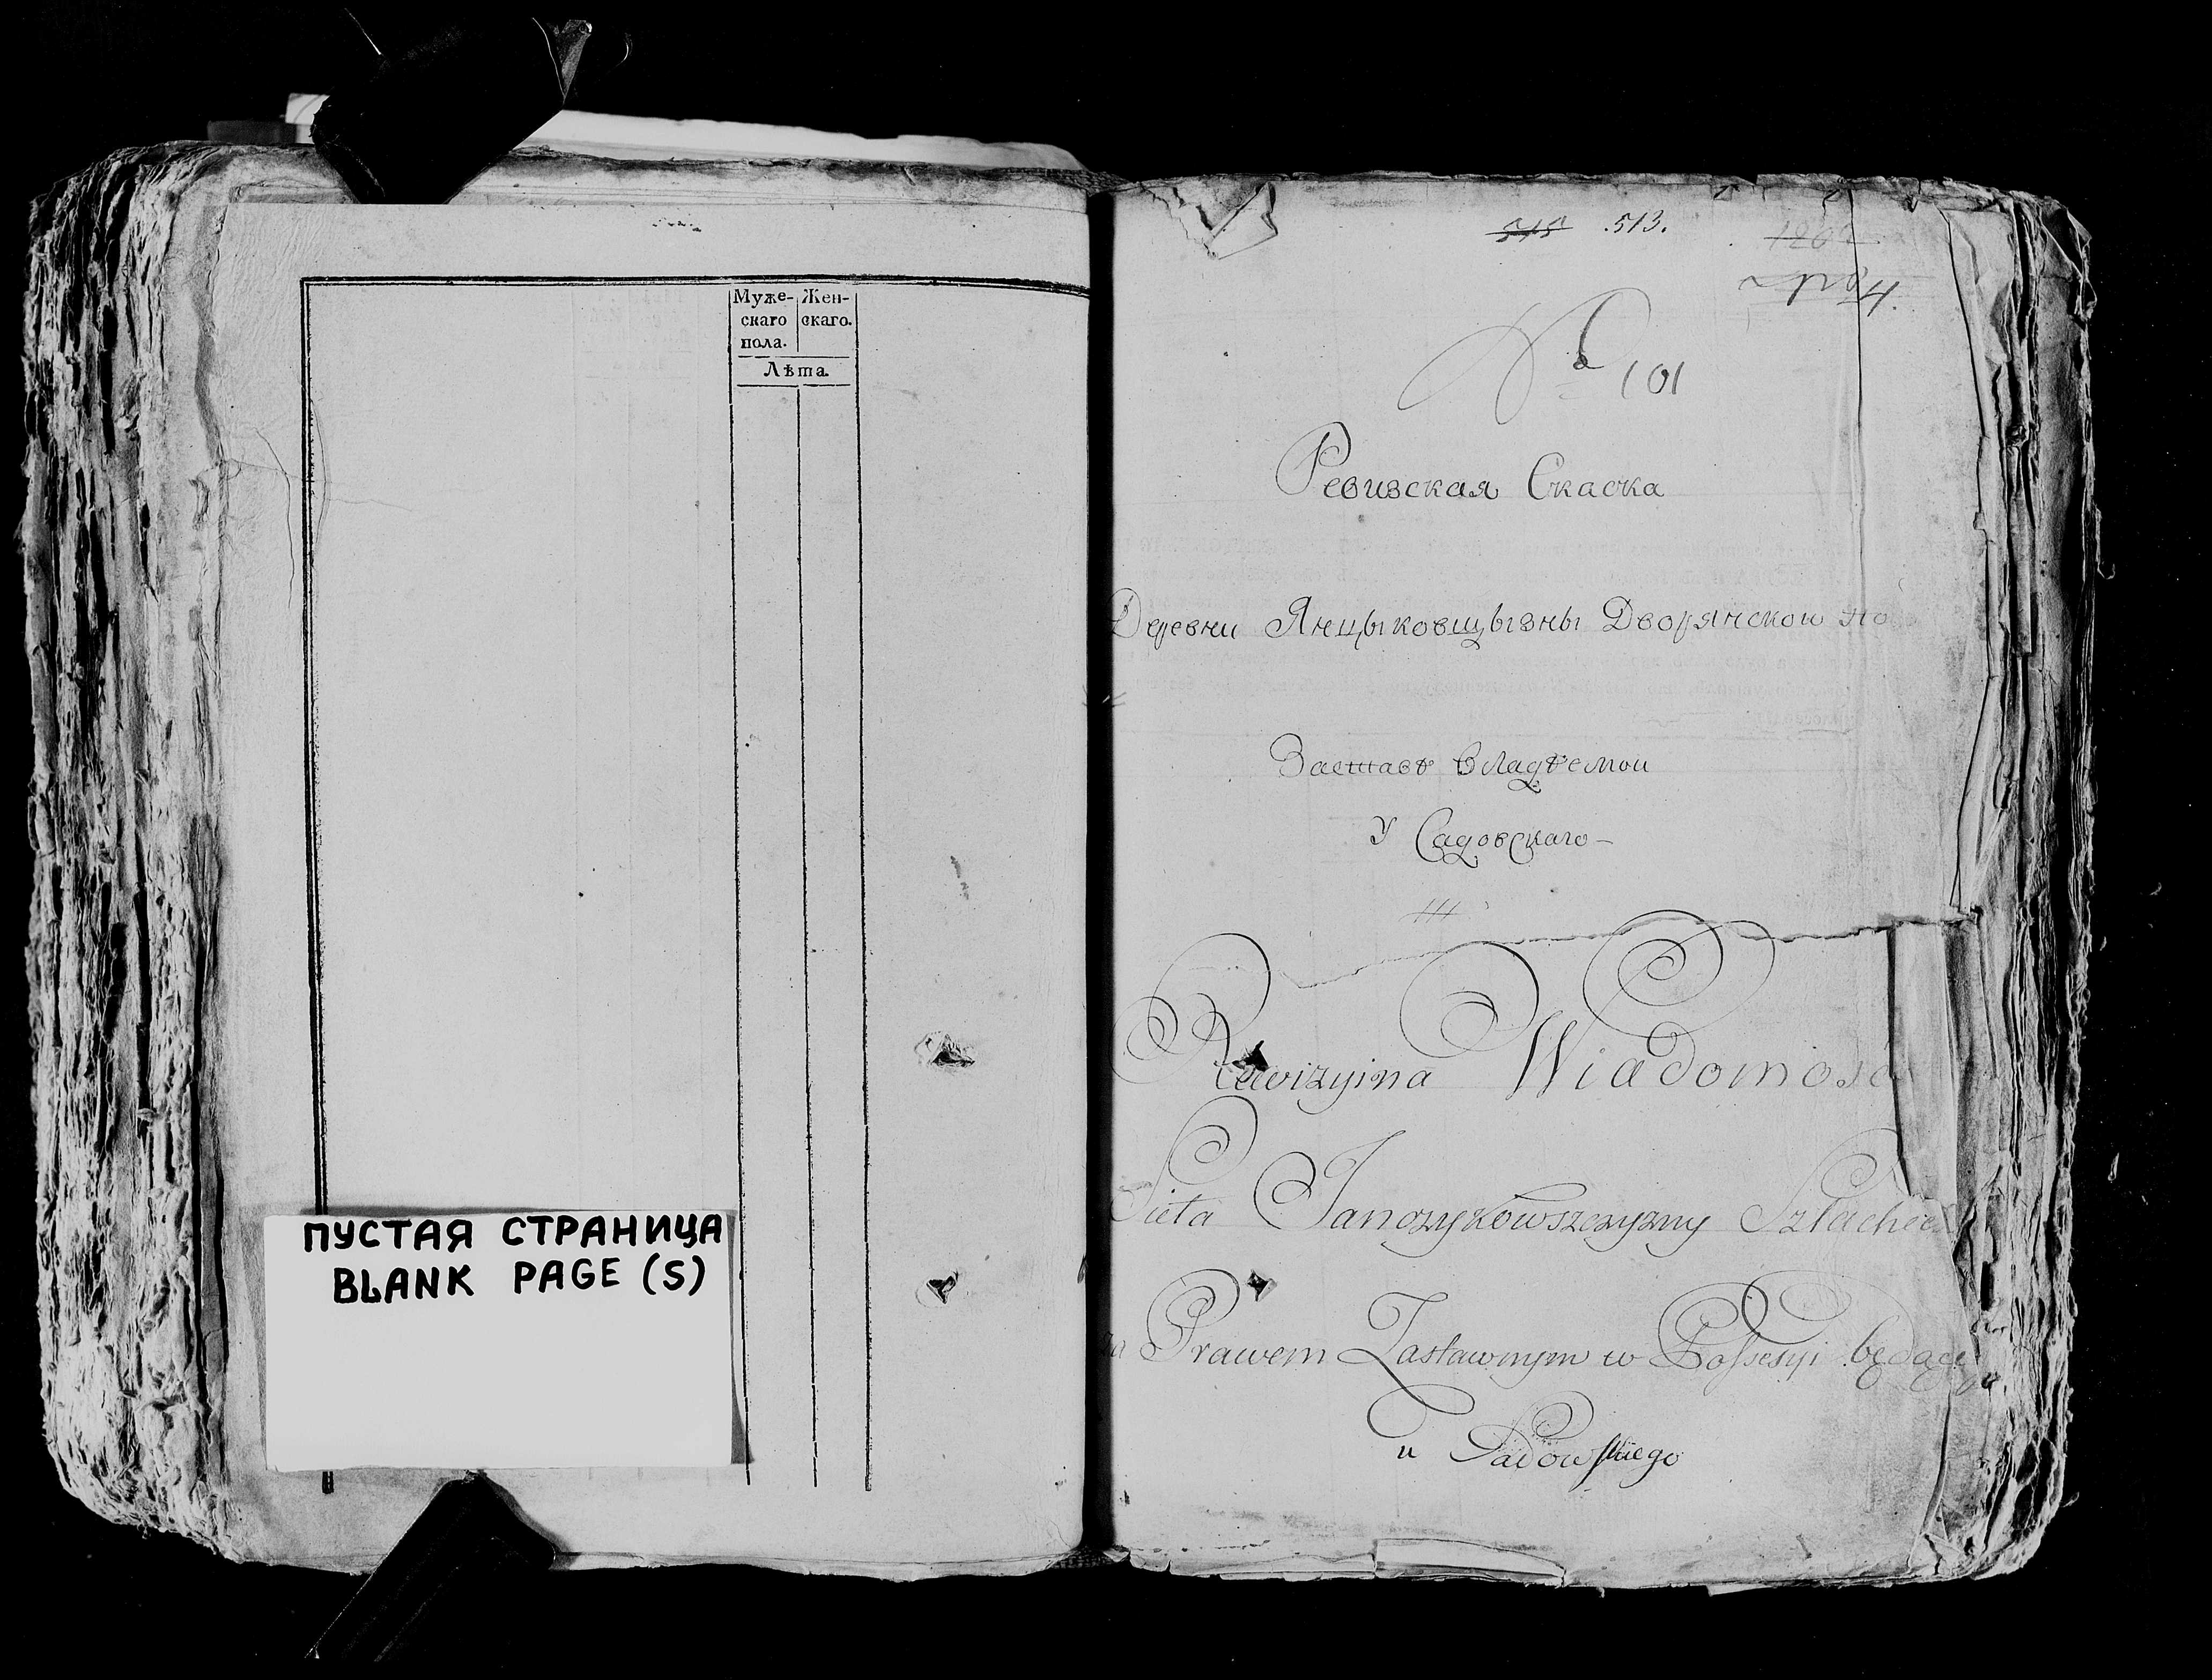 Муже- Жен-
скаго скаго.
пола.
Лѣта.
ПУСТАЯ СТРАНИЦА
BLANK PAGE (S)
515 513.
№ 101
Ревизская Скаска
Деревни Янцыковщызны Дворянской по
Заставѣ владѣемои
У Садовскаго
Rewizyina Wiadomość
Sieła Janczykowszczyzny Szlachec
za Prawem Zastawnym w Possesyi będące
u Sadowskiego